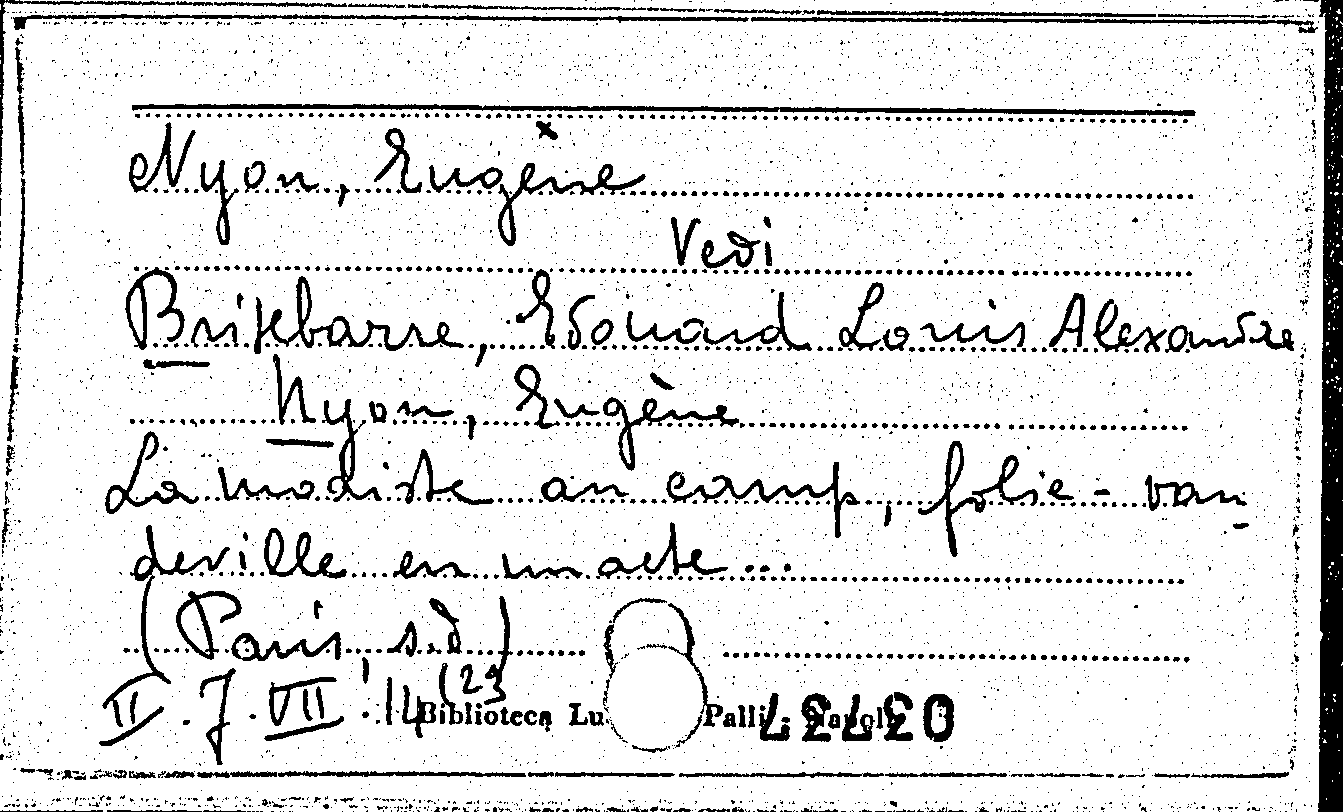 Nyon, Eugène
Vedi
Brisebarre, Edouard Louis Alexandre
Nyon, Eugène
La modiste au camp, folie-vau-
deville en un acte...
(Paris, s.d)
II.J.VII.14 (23
Biblioteca Lu Palli - Napoli